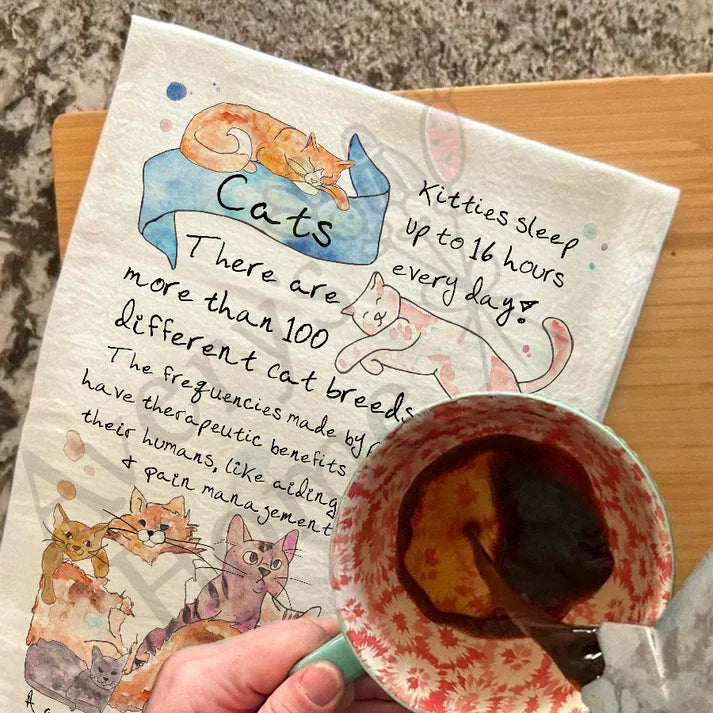 Cats
There are
more than 100
different cat breeds
The frequencies made by
have therapeutic benefits
their humans, like aiding
& pain management
Kitties sleep
up to 16 hours
every day!
A